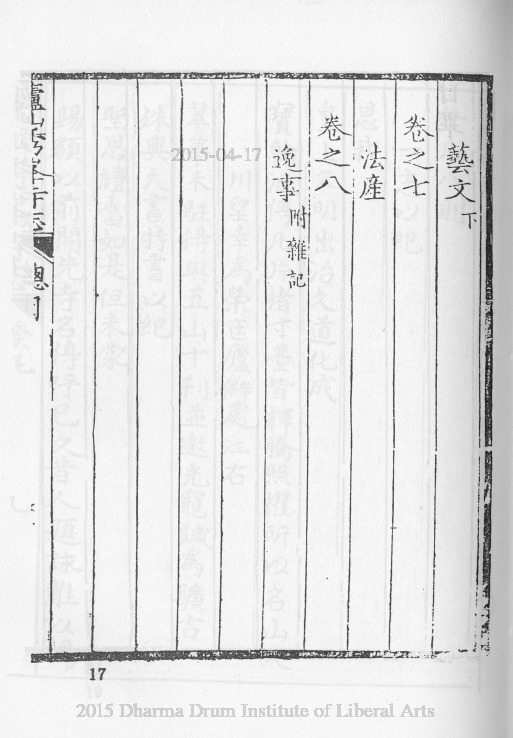 藝文下
卷之七
法產
卷之八
逸事附雜記
廬山秀峯寺志
總目
17
2015-04-17
2015 Dharma Drum Institute of Liberal Arts